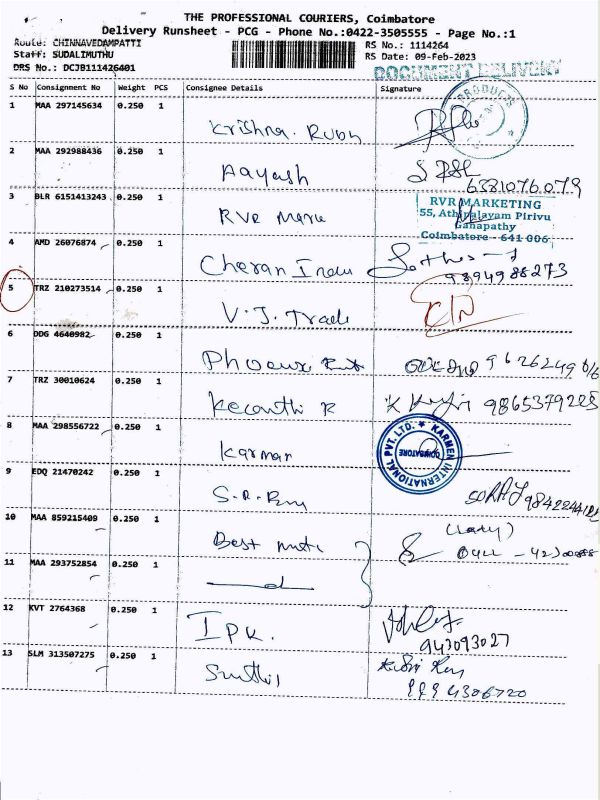 THE PROFESSIONAL COURIERS, Coimbatore
Delivery Runsheet - PCG - Phone No.:0422-3505555 - Page No.:1
Route: CHINNAVEDAMPATTI
RS No.: 1114264
Staff: SUDALIMUTHU
RS Date: 09-Feb-2023
DRS No.: DCJB111426401
DOCUMENT DELIVERY
S No Consignment No Weight PCS Consignee Details Signature
1 MAA 297145634 0.250 1
Krishna. Rubh
PRODUCTS
2 MAA 292988436 0.250 1
Aayash
6381076079
3 BLR 6151413243 0.250 1
RVR
RVR MARKETING
55, Athipalayam Pirivu
Ganapathy
Coimbatore - 641 006
4 AMD 26076874 0.250 1
Cheran
9894988273
5 TRZ 210273514 0.250 1
V. J. Trade
6 DDG 4640982 0.250 1
Phoenix Ent
7 TRZ 30010624 0.250 1
9865379228
8 MAA 298556722 0.250 1
Karman
KARMEN INTERNATIONAL PVT. LTD.
COIMBATORE
9 EDQ 21470242 0.250 1
S. R.
10 MAA 859215409 0.250 1
Best
11 MAA 293752854 0.250 1
12 KVT 2764368 0.250 1
IPK.
943093027
13 SLM 313507275 0.250 1
9994306720